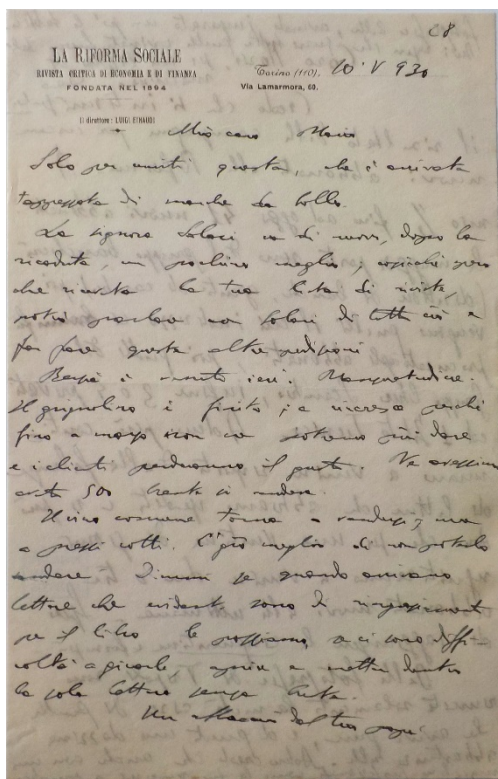 C8
LA RIFORMA SOCIALE
RIVISTA CRITICA DI ECONOMIA E DI FINANZA
FONDATA NEL 1894
Il direttore: LUIGI EINAUDI
Torino (110), 10 V 930
Via Lamarmora, 60.
Mio caro Mario
Solo per unirti questa, che è arrivata
tappezzata di marche da bollo.
La signora Solari va di nuovo, dopo la
ricaduta, un pochino meglio; cosicché spero
che ricevuta la tua lista di rivista,
potrò parlare con Solari di tutti ciò e
far fare questa altre spedizioni
Beppe è venuto ieri.
Il grignolino è finito; e incresce perché
fino a marzo non ne potremo più dare
e i clienti perderanno il gusto. Ne avessimo
500 brente si vendeva.
Il vino comune torna a vendersi; ma
a prezzi rotti. C'è già meglio di non poterlo
vendere. Dimmi se quando arrivano
lettere che evidente sono di ringraziamenti
per il libro le possiamo, se ci sono diffi-
coltà a girarle, aprire e metter dentro
la sola lettera senza busta.
Un bacione dal tuo papà